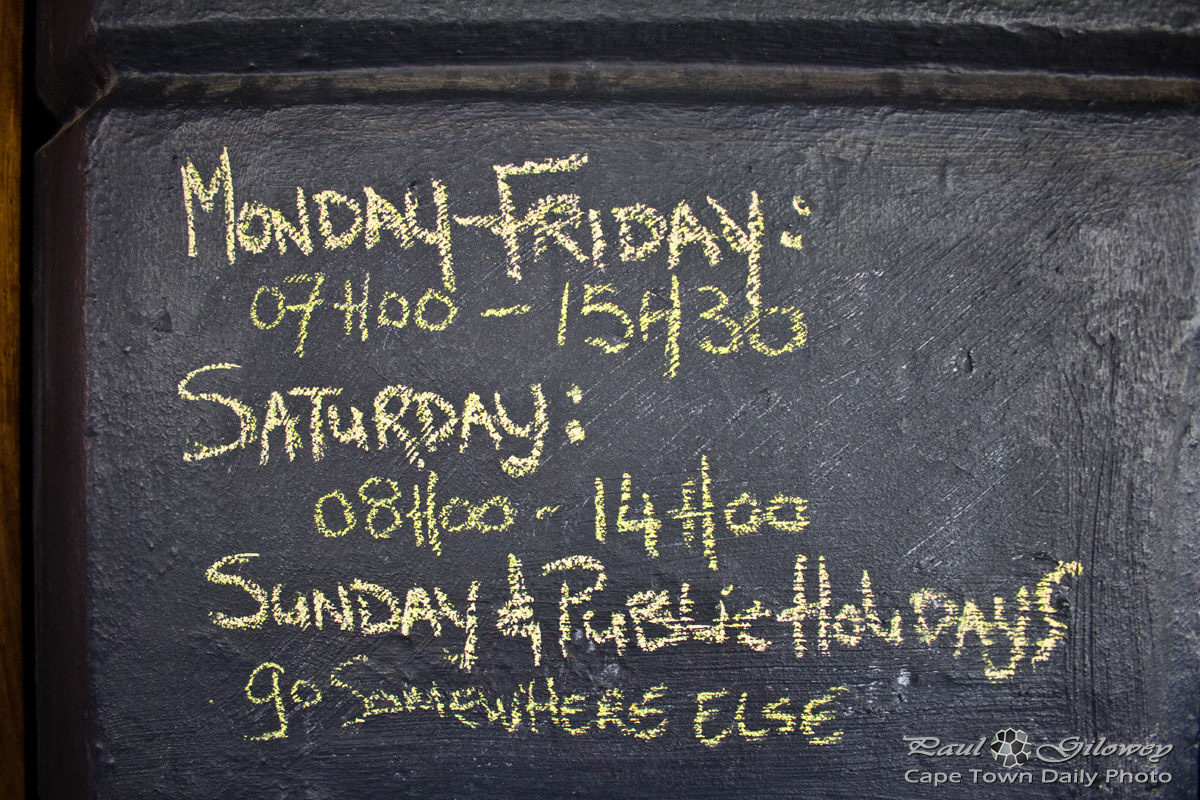 Monday-Friday:
07H00 - 15H30
Saturday:
08H00 - 14H00
Sunday & Public Holidays
go Somewhere Else
Paul Gilowey
Cape Town Daily Photo